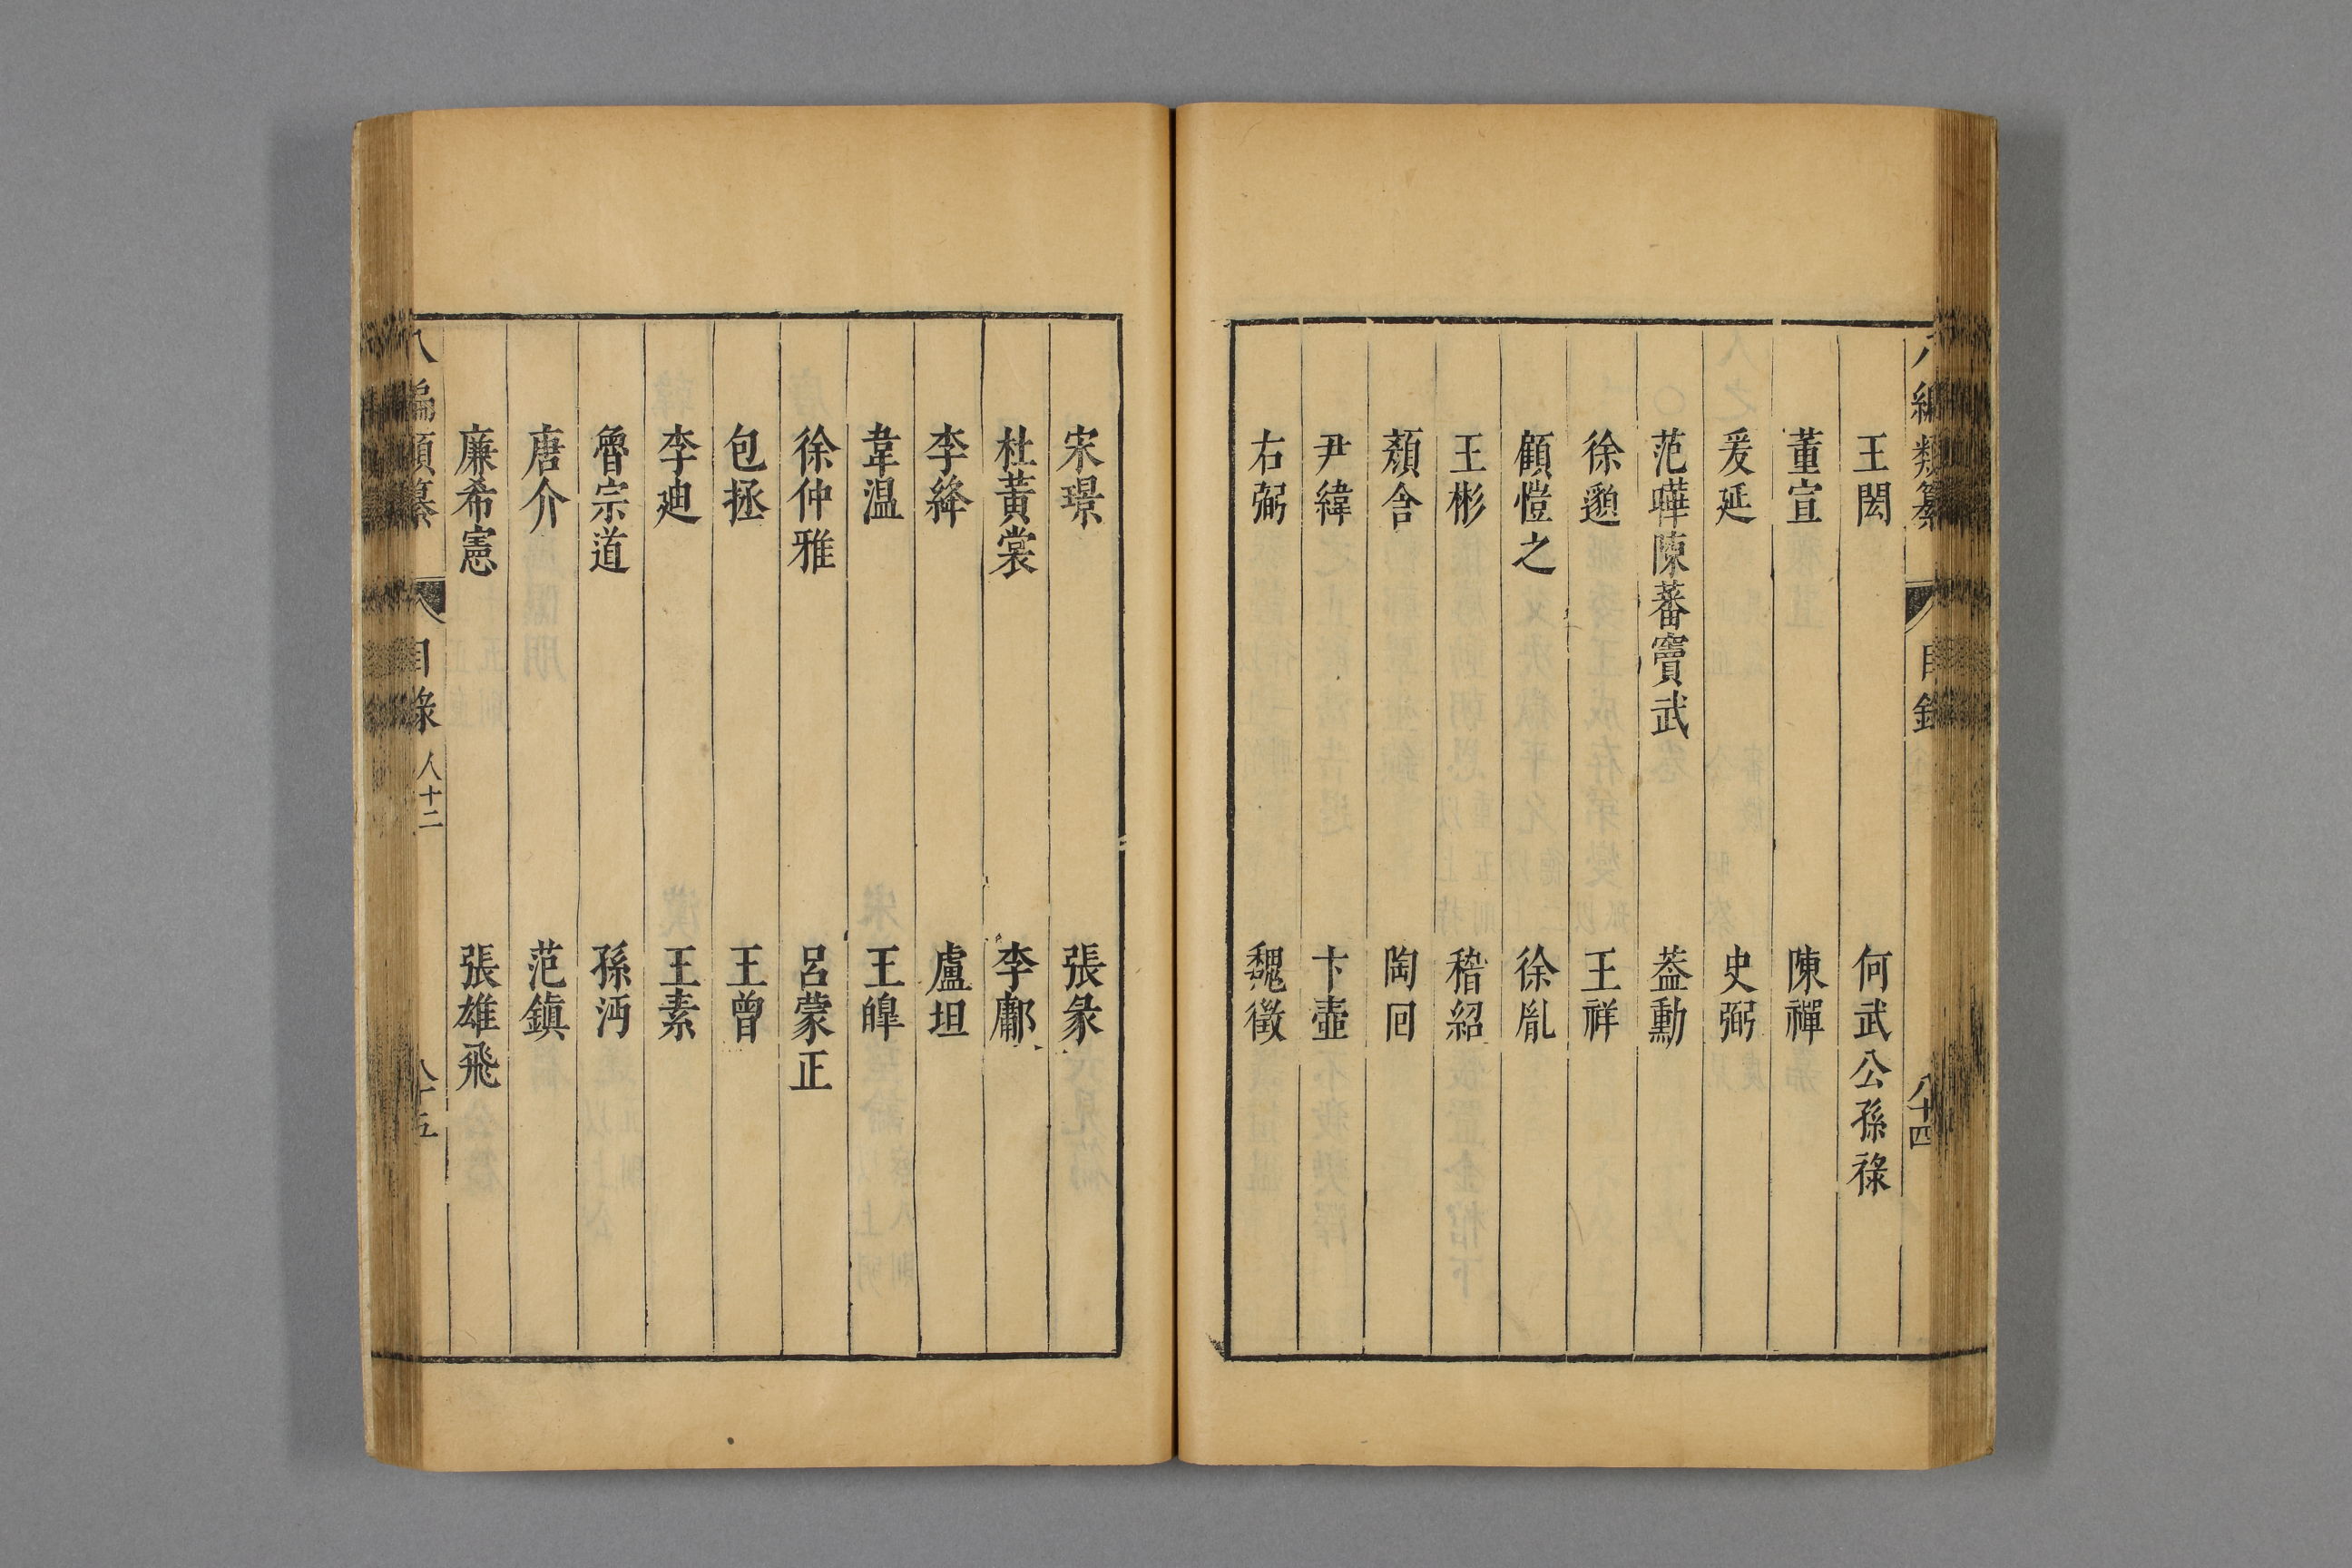 八編類纂 目錄 八十四
王閎 何武公孫祿
董宣 陳禪
爰延 史弼
范曄陳蕃竇武 葢勳
徐邈 王祥
顧愷之 徐胤
王彬 稽紹
顏含 陶回
尹緯 卞壼
右弼 魏徵
宋璟 張彖
杜黃裳 李鄘
李絳 盧坦
韋温 王皞
徐仲雅 呂蒙正
包拯 王曾
李廸 王素
魯宗道 孫沔
唐介 范鎮
廉希憲 張雄飛
八編類纂 目錄 人十二 八十五